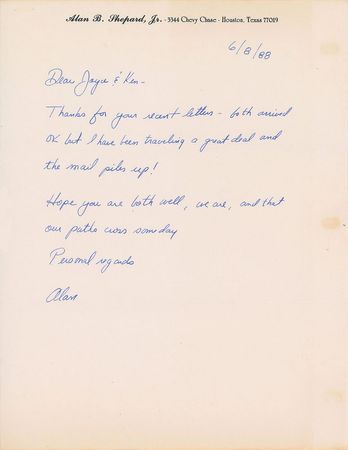 Alan B. Shepard, Jr. - 3344 Chevy Chase - Houston, Texas 77019
6/8/88
Dear Joyce & Ken -
Thanks for your recent letters - both arrived
OK but I have been traveling a great deal and
the mail piles up!
Hope you are both well, we are, and that
our paths cross someday
Personal regards
Alan